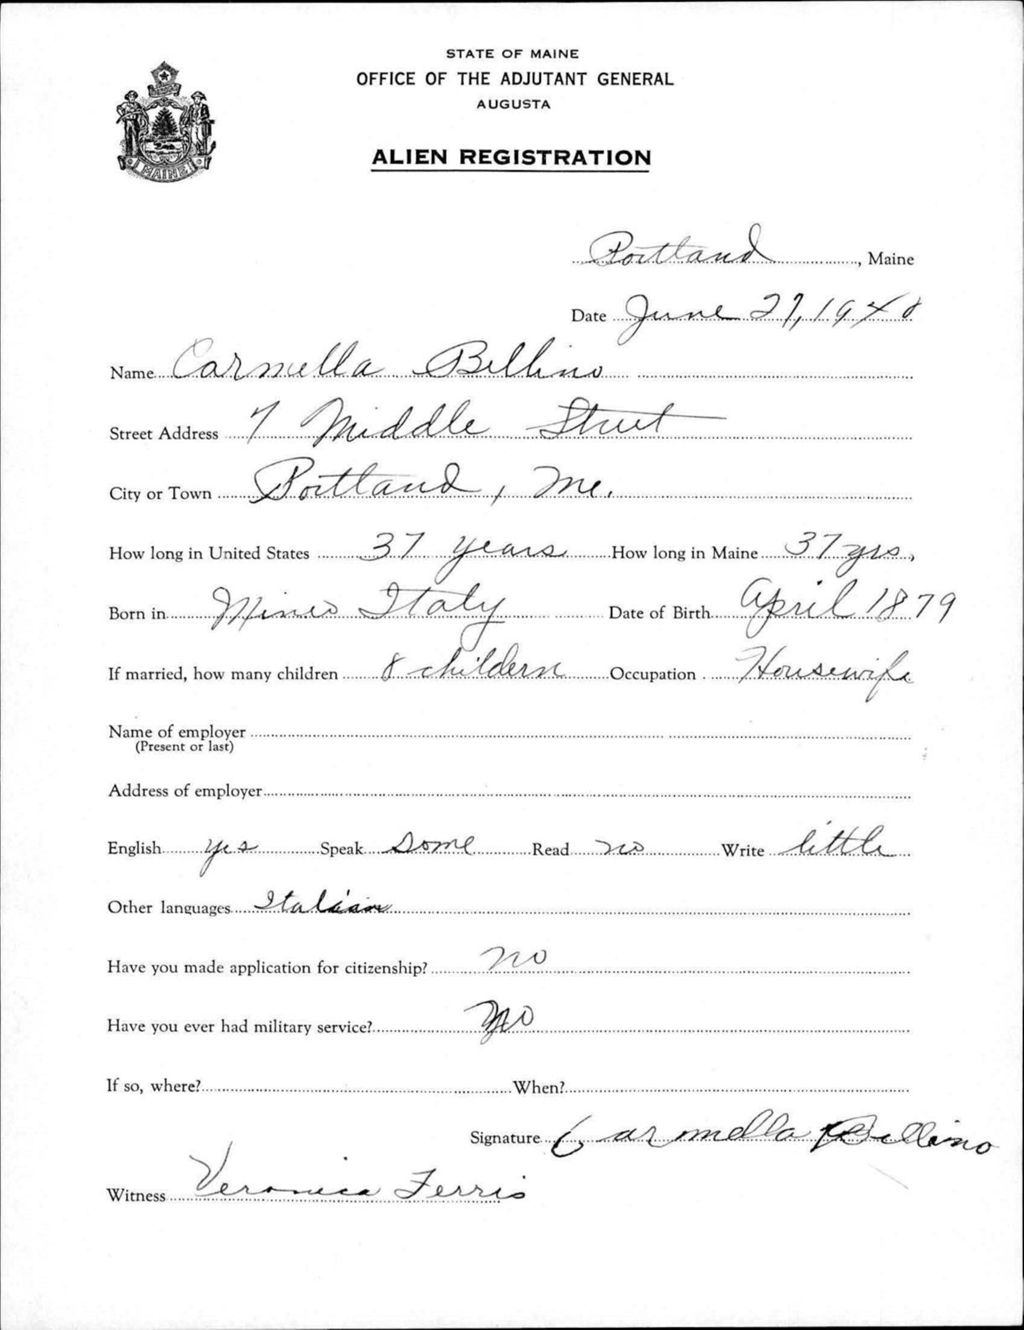 STATE OF MAINE
OFFICE OF THE ADJUTANT GENERAL
AUGUSTA
ALIEN REGISTRATION
MAINE
Portland, Maine
Date June 27, 1940
Name Carmella Bellino
Street Address 7 Middle Street
City or Town Portland, Me.
How long in United States 37 years How long in Maine 37 yrs,
Born in Mineo Italy Date of Birth April 1879
If married, how many children 8 childern Occupation Housewife
Name of employer
(Present or last)
Address of employer
English yes Speak Some Read no Write little
Other languages Italian
Have you made application for citizenship? no
Have you ever had military service? no
If so, where? When?
Signature Carmella Bellino
Witness Veronica Ferris